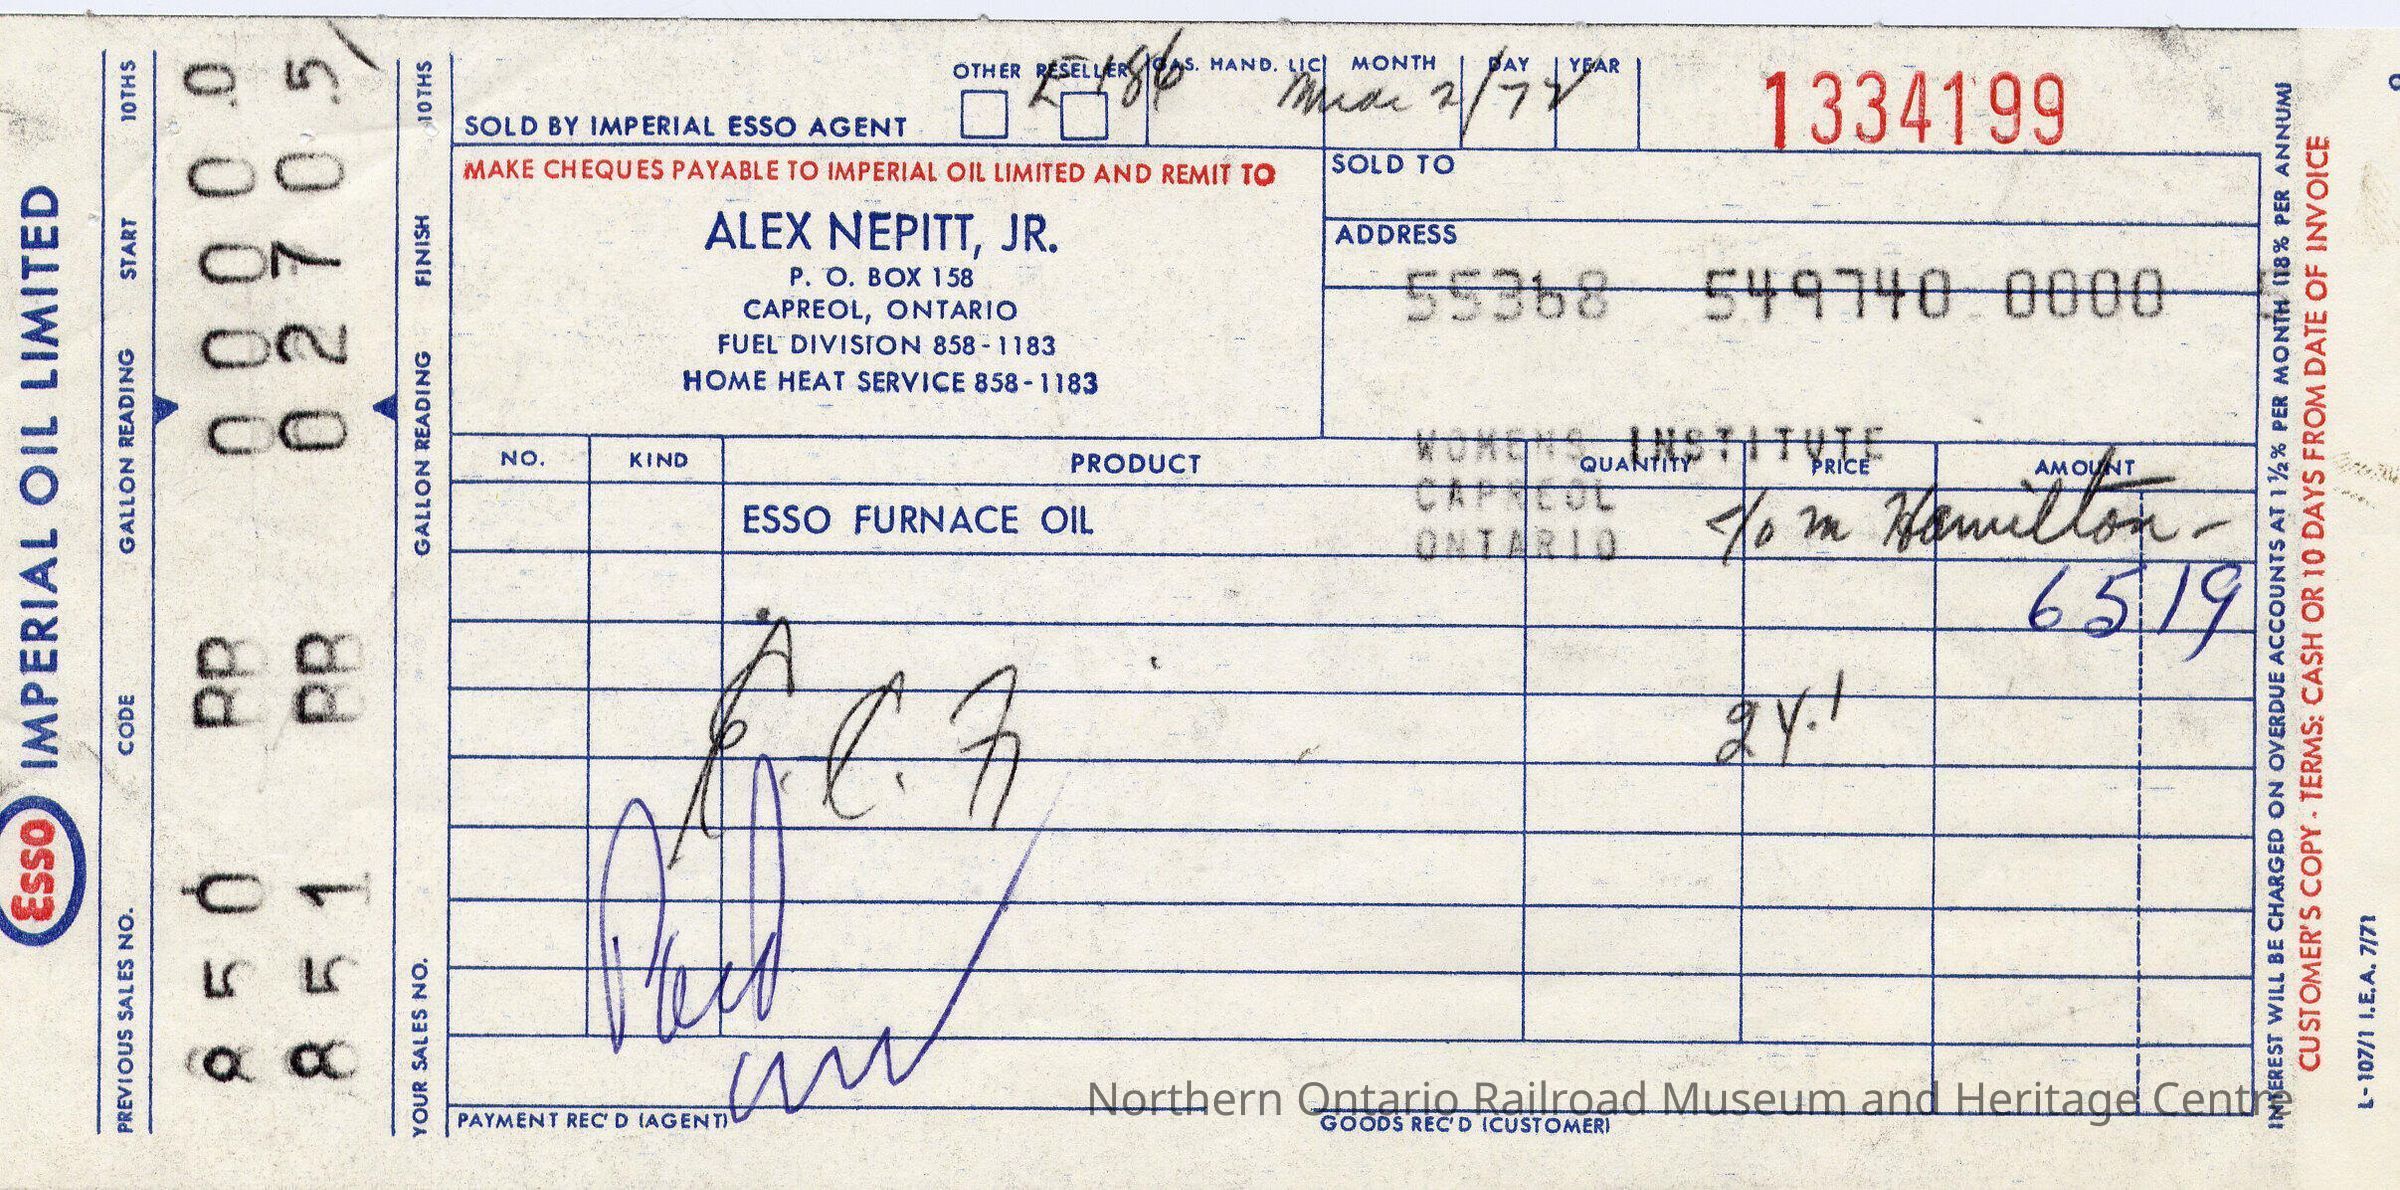 OTHER RESELLER GAS. HAND. LIC MONTH DAY YEAR
SOLD BY IMPERIAL ESSO AGENT
2/72
1334199
MAKE CHEQUES PAYABLE TO IMPERIAL OIL LIMITED AND REMIT TO
ALEX NEPITT, JR.
P. O. BOX 158
CAPREOL, ONTARIO
FUEL DIVISION 858-1183
HOME HEAT SERVICE 858-1183
SOLD TO
ADDRESS
55368 549740 0000
WOMENS INSTITUTE
CAPREOL
ONTARIO
c/o M Hamilton -
NO. KIND PRODUCT QUANTITY PRICE AMOUNT
ESSO FURNACE OIL
65 19
24.1
Paid
PAYMENT REC'D (AGENT)
GOODS REC'D (CUSTOMER)
Northern Ontario Railroad Museum and Heritage Centre
ESSO IMPERIAL OIL LIMITED
PREVIOUS SALES NO. CODE GALLON READING START 10THS
850 PR 0000.0
851 PR 0270.5
YOUR SALES NO. GALLON READING FINISH 10THS
INTEREST WILL BE CHARGED ON OVERDUE ACCOUNTS AT 1½% PER MONTH (18% PER ANNUM)
CUSTOMER'S COPY - TERMS: CASH OR 10 DAYS FROM DATE OF INVOICE
L-107/1 I.E.A. 7/71